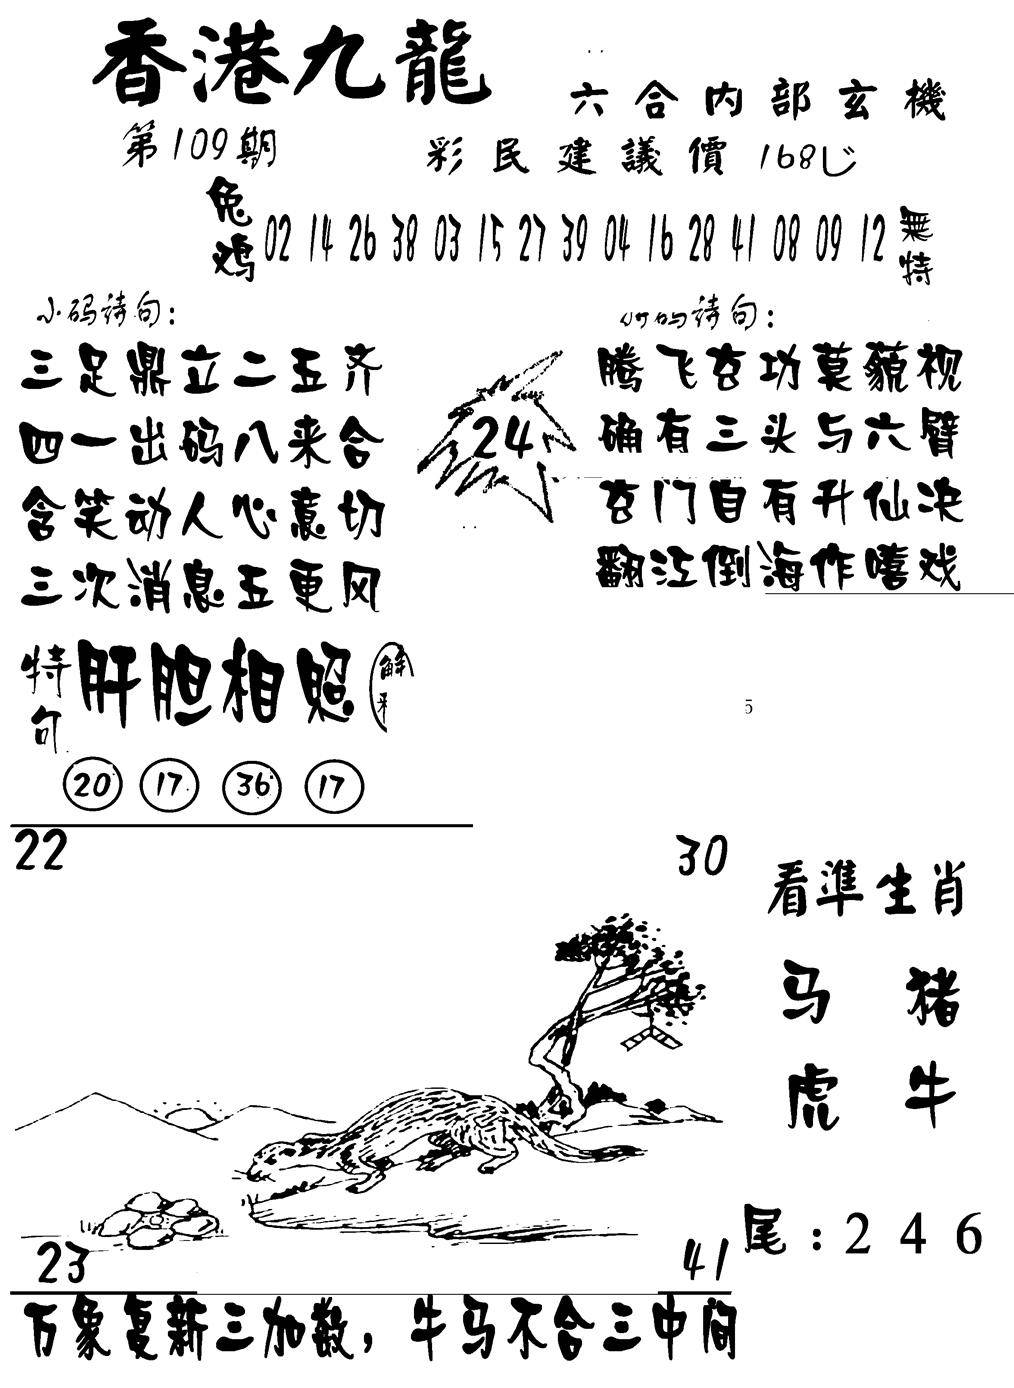 香港九龍
六合内部玄機
第109期
彩民建議價168
兔鸡
02 14 26 38 03 15 27 39 04 16 28 41 08 09 12
無特
小码诗句：
码诗句：
三足鼎立二五齐
四一出码八来合
含笑动人心意切
三次消息五更风
24
腾飞玄功莫藐视
确有三头与六臂
玄门自有升仙决
翻江倒海作嘻戏
特句
肝胆相照
解
5
20 17 36 17
22
30
看準生肖
马 猪
虎 牛
尾：2 4 6
23
41
万象复新三加数，牛马不合三中间